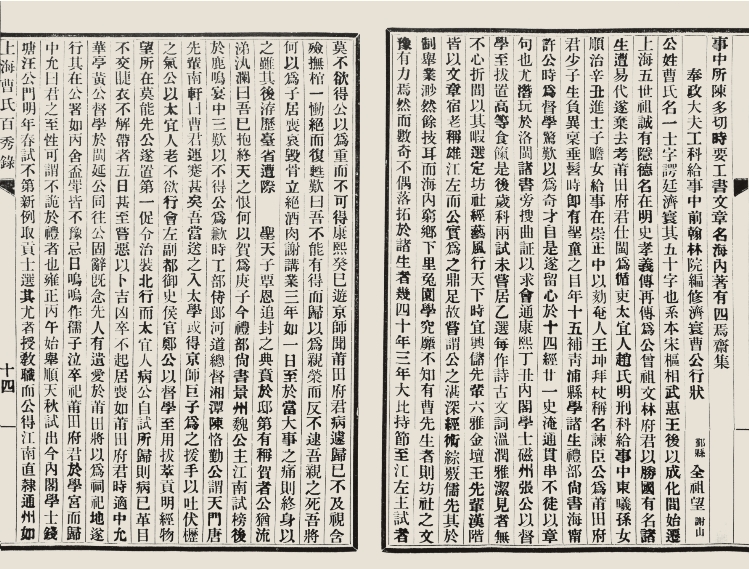 事中所陳多切時要工書文章名海內著有四焉齋集
奉政大夫工科給事中前翰林院編修濟寰曹公行狀
鄞縣 全祖望 謝山
公姓曹氏名一士字諤廷濟寰其五十字也系本宋樞相武惠王後以成化間始遷
上海五世祖誠有隱德名在明史孝義傳再傳爲公曾祖文林府君以勝國有名諸
生遭易代遂棄去考莆田府君仕閩爲循吏太宜人趙氏明刑科給事中東曦孫女
順治辛丑進士子瞻女給事在崇正中以劾奄人王坤拜杖稱名諫臣公爲莆田府
君少子生負異稟垂髫時卽有聖童之目年十五補靑浦縣學諸生禮部尙書海甯
許公時爲督學驚歎以爲奇才自是遂留心於十四經廿一史淹通貫串不徒以章
句也尤潛玩於洛閩諸書旁搜曲証以求會通康熙丁丑內閣學士磁州張公以督
學至拔置高等食餼是後歲科兩試未嘗居乙選每作詩古文詞溫潤雅潔見者無
不心折間以其暇選定坊社經藝風行天下時宜興儲先輩六雅金壇王先輩漢階
皆以文章宿老稱雄江左而公實爲之鼎足故嘗謂公之湛深經術綜覈儒先其於
制舉業渺然餘技耳而海內窮鄉下里兔園學究靡不知有曹先生者則坊社之文
豫有力焉然而數奇不偶落拓於諸生者幾四十年三年大比持節至江左主試者
莫不欲得公以爲重而不可得康熙癸巳遊京師聞莆田府君病遽歸已不及視含
殮撫棺一慟絕而復甦歎曰吾不能有得而歸以爲親榮而反不逮吾親之死吾將
何以爲子居喪哀毀骨立絕酒肉謝講業三年如一日至於當大事之痛則終身以
之雖其後洊歷臺省遭際 聖天子覃恩追封之典賁於邸第有稱賀者公猶流
涕汍瀾曰吾已抱終天之恨何以賀爲庚子今禮部尙書景州魏公主江南試榜後
於鹿鳴宴中三歎以不得公爲歉時工部侍郎河道總督湘潭陳恪勤公謂天門唐
先輩南軒曰曹君連蹇甚矣吾當送之入太學或得京師巨子爲之援手以吐伏櫪
之氣公以太宜人老不欲行會左副都御史侯官鄭公以督學至用拔萃貢明經物
望所在莫能先公遂置第一促令治裝北行而太宜人病公自試所歸則病已革目
不交睫衣不解帶者五日甚至嘗惡以卜吉凶卒不起居喪如莆田府君時適中允
華亭黃公督學於閩延公同往公固辭旣念先人有遺愛於莆田將以爲祠祀地遂
行其在公署如丙舍盃斝皆不豫忌日嗚嗚作孺子泣卒祀莆田府君於學宮而歸
中允曰君之至性可謂不詭於禮者也雍正丙午始舉順天秋試出今內閣學士錢
塘汪公門明年春試不第新例取貢士選其尤者授敎職而公得江南直隸通州如
上海曹氏百秀錄
十四